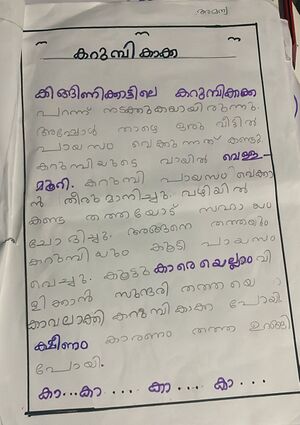 അമന്യ
കറുമ്പികാക്ക
കിങ്ങിണിക്കാട്ടിലെ കറുമ്പികാക്ക
പറന്ന് നടക്കുകയായിരുന്നു.
അപ്പോൾ താഴെ ഒരു വീട്ടിൽ
പായസം വെക്കുന്നത് കണ്ടു.
കറുമ്പിയുടെ വായിൽ വെള്ള-
മൂറി. കറുമ്പി പായസം വെക്കാ
ൻ തീരുമാനിച്ചു. വഴിയിൽ
കണ്ട തത്തയോട് സഹായം
ചോദിച്ചു. അങ്ങനെ തത്തയും
കറുമ്പിയും കൂടി പായസം
വെച്ചു. കൂട്ടുകാരെയെല്ലാം വി
ളിക്കാൻ സുന്ദരി തത്തയെ
കാവലാക്കി കറുമ്പികാക്ക പോയി.
ക്ഷീണം കാരണം തത്ത ഉറങ്ങി
പോയി.
കാ...കാ .... കാ ... കാ ....